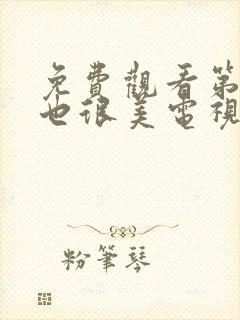 免費觀看第
也很美電視
粉筆琴